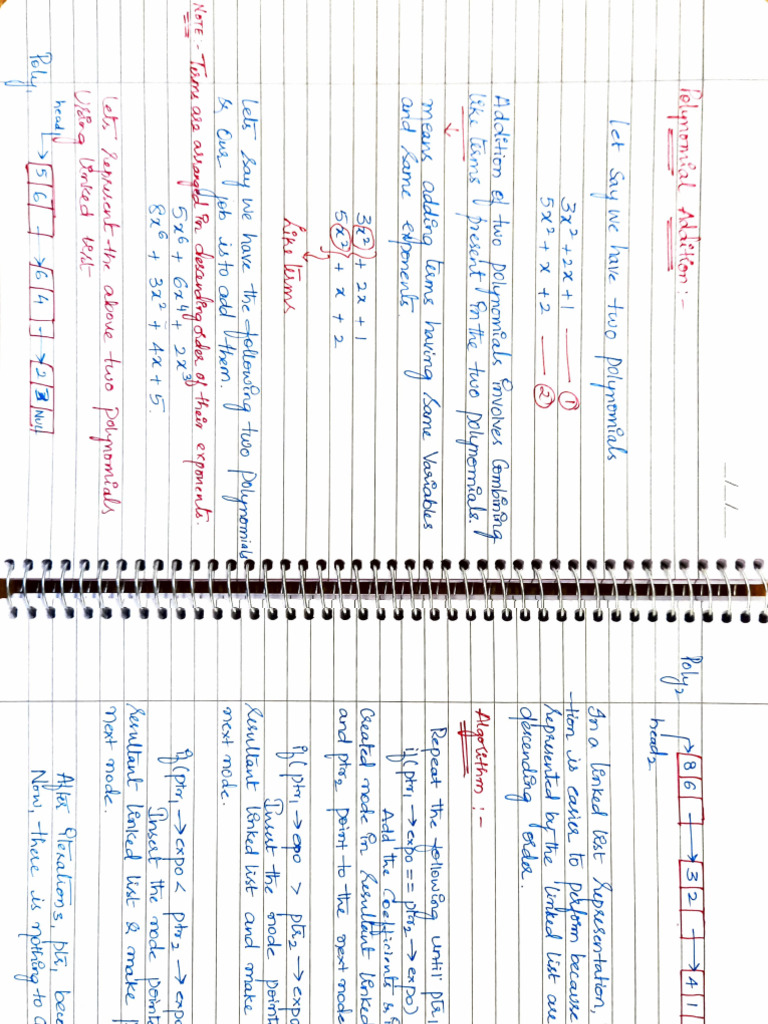 __/__/__
Polynomial Addition :-
Let Say we have two polynomials
3x² + 2x + 1 —— ①
5x² + x + 2 —— ②
Addition of two polynomials involves Combining
like terms present in the two polynomials.
means adding terms having Same Variables
and Same exponents
3x² + 2x + 1
5x² + x + 2
Like terms
Lets Say we have the following two polynomials
& Our job is to add them.
NOTE :- Terms are arranged in descending order of their exponents.
5x⁶ + 6x⁴ + 2x³
8x⁶ + 3x² + 4x + 5.
Lets represent the above two polynomials
Using linked list
head₁
Poly₁ → 5 6 → 6 4 → 2 3 Null
Poly₂ → 8 6 → 3 2 → 4 1
head₂
In a linked list Representation,
-tion is easier to perform because
Represented by the linked list are
descending order.
Algorithm :-
Repeat the following until ptr₁
if(ptr₁ → expo == ptr₂ → expo)
Add the Coefficients &
Created node in Resultant linked
and ptr₂ point to the next node
if(ptr₁ → expo > ptr₂ → expo
Insert the node point
Resultant linked list and make
next node.
if(ptr₁ → expo < ptr₂ → expo
Insert the node point
Resultant linked list & make
next node.
After iterations, ptr₁
Now, there is nothing to